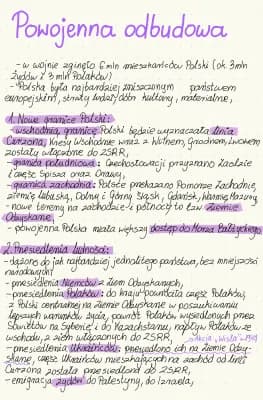 Powojenna odbudowa
- w wojnie zginęło 6 mln mieszkańców Polski (ok. 3mln
Żydów i 3 mln Polaków)
- Polska była najbardziej zniszczonym państwem
europejskim, straty ludzi, dóbr kultury, materialne,
1. Nowe granice Polski:
- wschodnią granicę Polski będzie wyznaczała linia
Curzona, Kresy Wschodnie wraz z Wilnem, Grodnem, Lwowem
zostały włączone do ZSRR,
- granica południowa: Czechosłowacji przyznano Zaolzie
i część Spisza oraz Orawy,
- granica zachodnia: Polsce przekazano Pomorze Zachodnie,
ziemię lubuską, Dolny i Górny Śląsk, Gdańsk, Warmię, Mazury
- nowe tereny na zachodzie i północy to tzw. Ziemie
Odzyskane,
- powojenna Polska miała większy dostęp do Morza Bałtyckiego
2. Przesiedlenia ludności:
- dążono do jak najbardziej jednolitego państwa, bez mniejszości
narodowych
- przesiedlenia Niemców z Ziem Odzyskanych,
- przesiedlenia Polaków: do kraju powracała część Polaków,
z Polski centralnej na Ziemie Odzyskane w poszukiwaniu
lepszych warunków życia, powrót Polaków wysiedlonych przez
Sowietów na Syberię i do Kazachstanu, napływ Polaków ze
wschodu, z ziem włączonych do ZSRR,
"akcja „Wisła" 1947
- przesiedlenia Ukraińców: przesiedlono ich na Ziemie Odzy-
skane, część Ukraińców mieszkających na zachód od linii
Curzona została przesiedlona do ZSRR,
- emigracja Żydów do Palestyny, do Izraela,